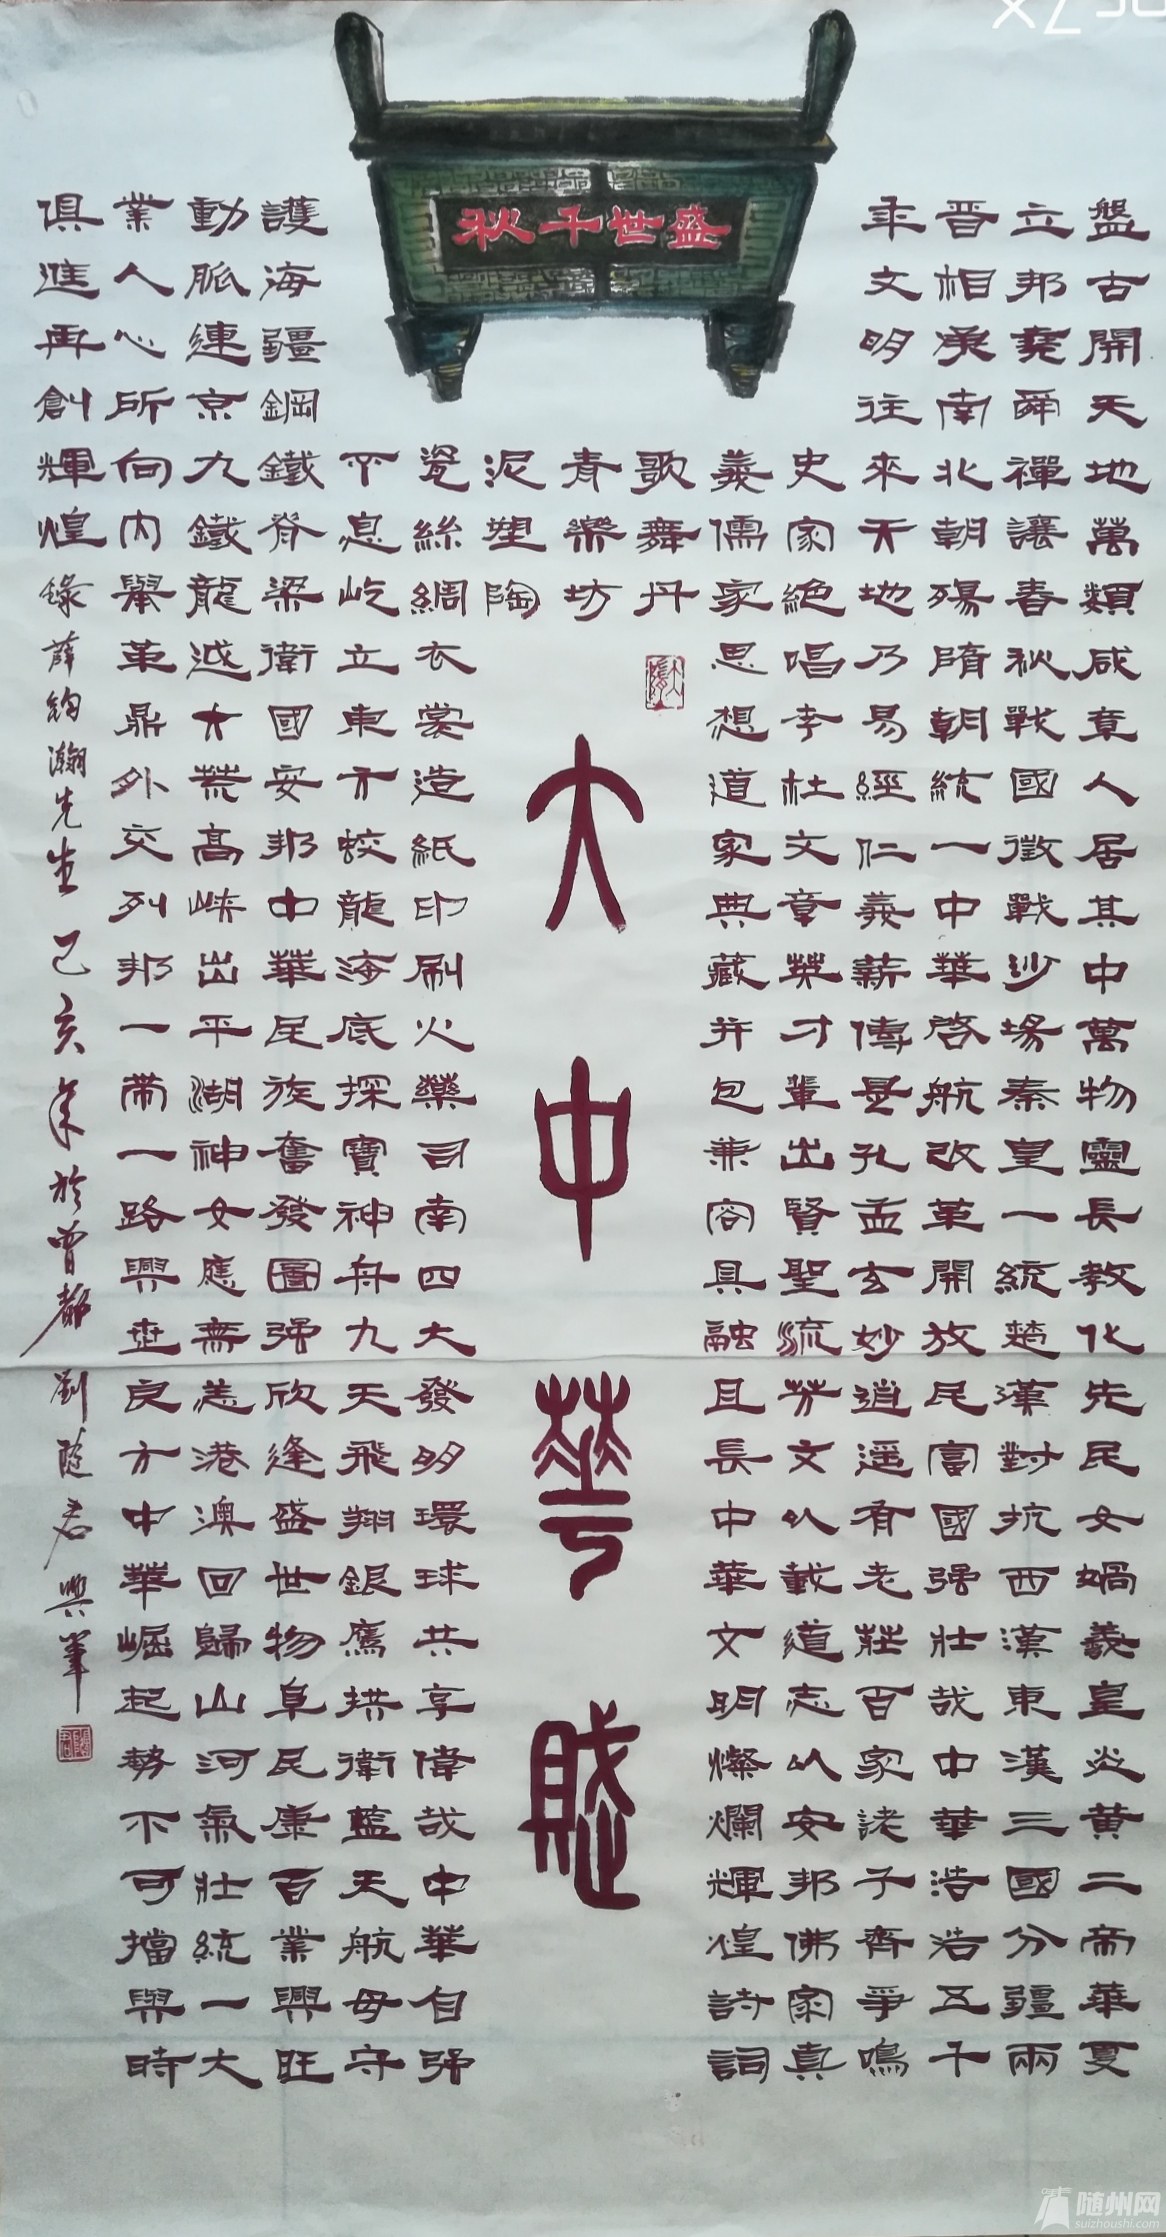 盛世千秋
盤古開天地萬類咸章人居其中萬物靈長教化先民女媧羲皇炎黄二帝華夏
立邦堯舜禪讓春秋戰國徵戰沙場秦皇一統楚漢對抗西漢東漢三國分疆兩
晉相承南北朝殤隋朝統一中華啓航改革開放民富國强壯哉中華浩浩五千
年文明往來天地乃易經仁義薪傳是孔孟玄妙逍遥有老莊百家諸子齊爭鳴
史家絶唱李杜文章英才輩出賢聖流芳文以載道志以安邦佛家真
義儒家思想道家典藏并包兼容具融且長中華文明燦爛輝煌詩詞
歌舞丹
大隨
青樂坊
大中華賦
泥塑陶
瓷絲綢衣裳造紙印刷火藥司南四大發明環球共享偉哉中華自强
不息屹立東方蛟龍海底探寶神舟九天飛翔銀鷹拱衛藍天航母守
護海疆鋼鐵脊梁衛國安邦中華民族奮發圖强欣逢盛世物阜民康百業興旺
動脈連京九鐵龍越大荒高峽出平湖神女應無恙港澳回歸山河氣壯統一大
業人心所向内舉革鼎外交列邦一帶一路興世良方中華崛起勢不可擋與時
俱進再創輝煌錄薛鈞瀚先生己亥年於曾都劉隨君興筆
随州网
suizhoushi.com